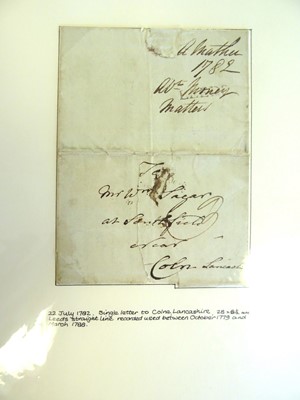 A Mather
1782
Abt. Money
Matters
To
Mr Wm Sagar
at Southfield
near
Coln Lancash
22 July 1782. Single letter to Colne, Lancashire.
Leeds straight line recorded used between October 1773 and
March 1788.